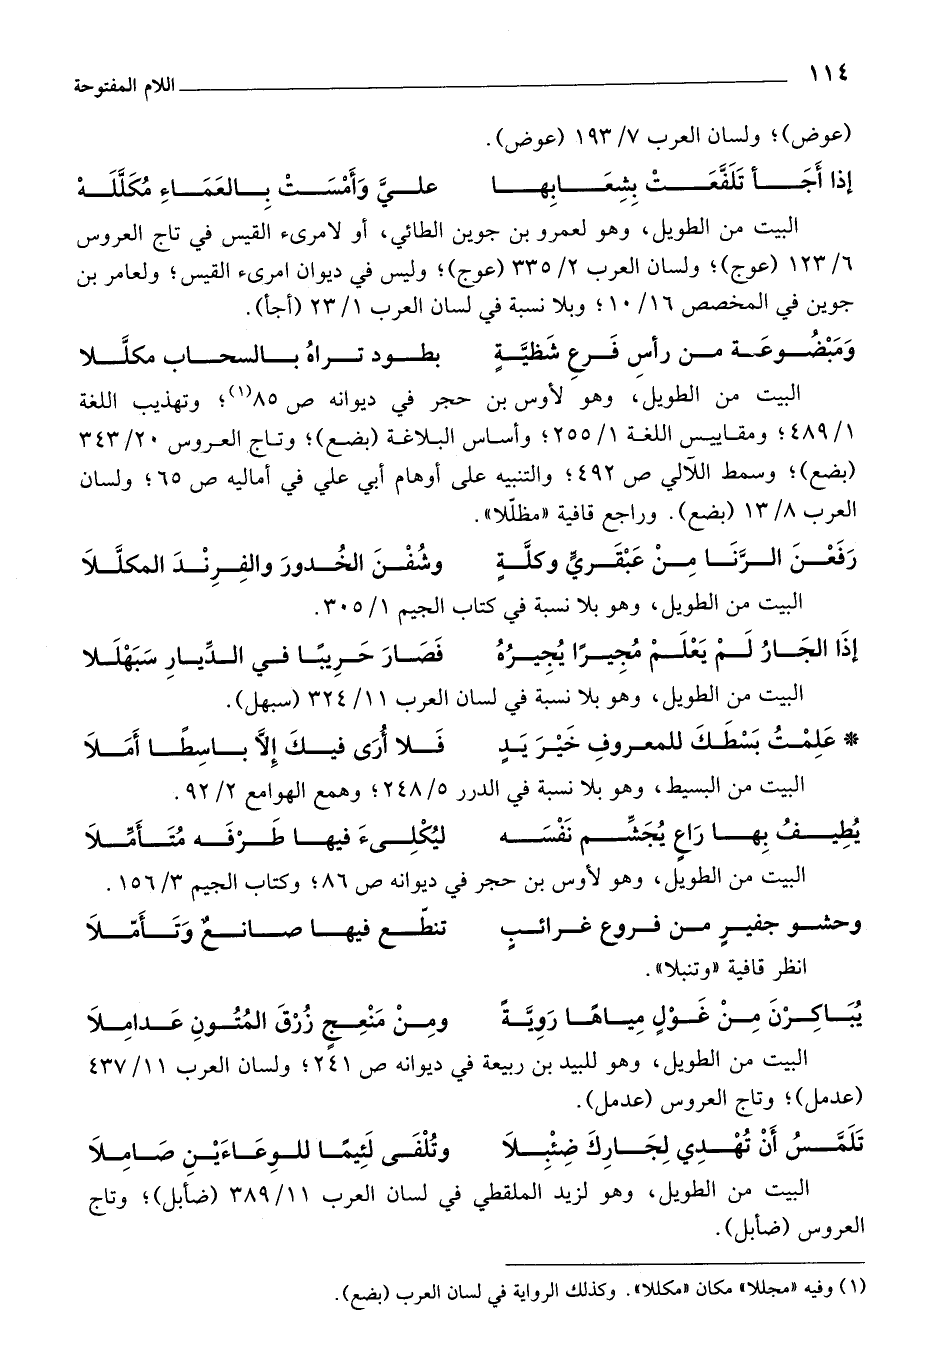 ١١٤ اللام المفتوحة
(عوض)؛ ولسان العرب ٧/ ١٩٣ (عوض).
إذا أَجَأ تَلَفَّعَتْ بِشِعَابِها علىَّ وَأَمْسَتْ بِالعَمَاءِ مُكَلَّلَهْ
البيت من الطويل، وهو لعمرو بن جوين الطائي، أو لامرىء القيس في تاج العروس
٦/ ١٢٣ (عوج)؛ ولسان العرب ٢/ ٣٣٥ (عوج)؛ وليس في ديوان امرىء القيس؛ ولعامر بن
جوين في المخصص ١٦/ ١٠؛ وبلا نسبة في لسان العرب ١/ ٢٣ (أجأ).
وَمَبْضُوعَة من رأسِ فَرعِ شَظيَّةٍ بطود تراهُ بالسحاب مكلَّلا
البيت من الطويل، وهو لأوس بن حجر في ديوانه ص ٨٥(١)؛ وتهذيب اللغة
١/ ٤٨٩؛ ومقاييس اللغة ١/ ٢٥٥؛ وأساس البلاغة (بضع)؛ وتاج العروس ٢٠/ ٣٤٣
(بضع)؛ وسمط اللآلي ص ٤٩٢؛ والتنبيه على أوهام أبي علي في أماليه ص ٦٥؛ ولسان
العرب ٨/ ١٣ (بضع). وراجع قافية «مظلّلا».
رَفَعْنَ الرَّنَا مِنْ عَبْقَريٍّ وكلَّةٍ وشُفْنَ الخُدورَ والفِرِنْدَ المكلَّلاَ
البيت من الطويل، وهو بلا نسبة في كتاب الجيم ١/ ٣٠٥.
إذَا الجَارُ لَمْ يَعْلَمْ مُجِيرًا يُجِيرُهُ فَصَارَ حَرِيبًا في الدِّيارِ سَبَهْلَلا
البيت من الطويل، وهو بلا نسبة في لسان العرب ١١/ ٣٢٤ (سبهل).
* عَلِمْتُ بَسْطَكَ للمعروفِ خَيْرَ يَدٍ فَلا أُرَى فيكَ إلاَّ باسِطًا أَمَلاَ
البيت من البسيط، وهو بلا نسبة في الدرر ٥/ ٢٤٨؛ وهمع الهوامع ٢/ ٩٢.
يُطِيفُ بِها رَاعٍ يُجَشِّم نَفْسَه ليُكْلِىءَ فيها طَرْفَه مُتَأَمِّلاَ
البيت من الطويل، وهو لأوس بن حجر في ديوانه ص ٨٦؛ وكتاب الجيم ٣/ ١٥٦.
وحشو جفيرٍ من فروع غرائبٍ تنطّع فيها صانعٌ وَتَأَمّلاَ
انظر قافية «وتنبلا».
يُبَاكِرْنَ مِنْ غَوْلٍ مِياهًا رَوِيَّةً ومِنْ مَنْعِجٍ زُرْقَ المُتُونِ عَدامِلاَ
البيت من الطويل، وهو للبيد بن ربيعة في ديوانه ص ٢٤١؛ ولسان العرب ١١/ ٤٣٧
(عدمل)؛ وتاج العروس (عدمل).
تَلَمَّسُ أَنْ تُهْدِي لِجَارِكَ ضِئْبِلاَ وتُلْفَى لَئِيمًا للوِعَاءَيْنِ صَامِلاَ
البيت من الطويل، وهو لزيد الملقطي في لسان العرب ١١/ ٣٨٩ (ضأبل)؛ وتاج
العروس (ضأبل).
(١) وفيه «مجللا» مكان «مكللا». وكذلك الرواية في لسان العرب (بضع).